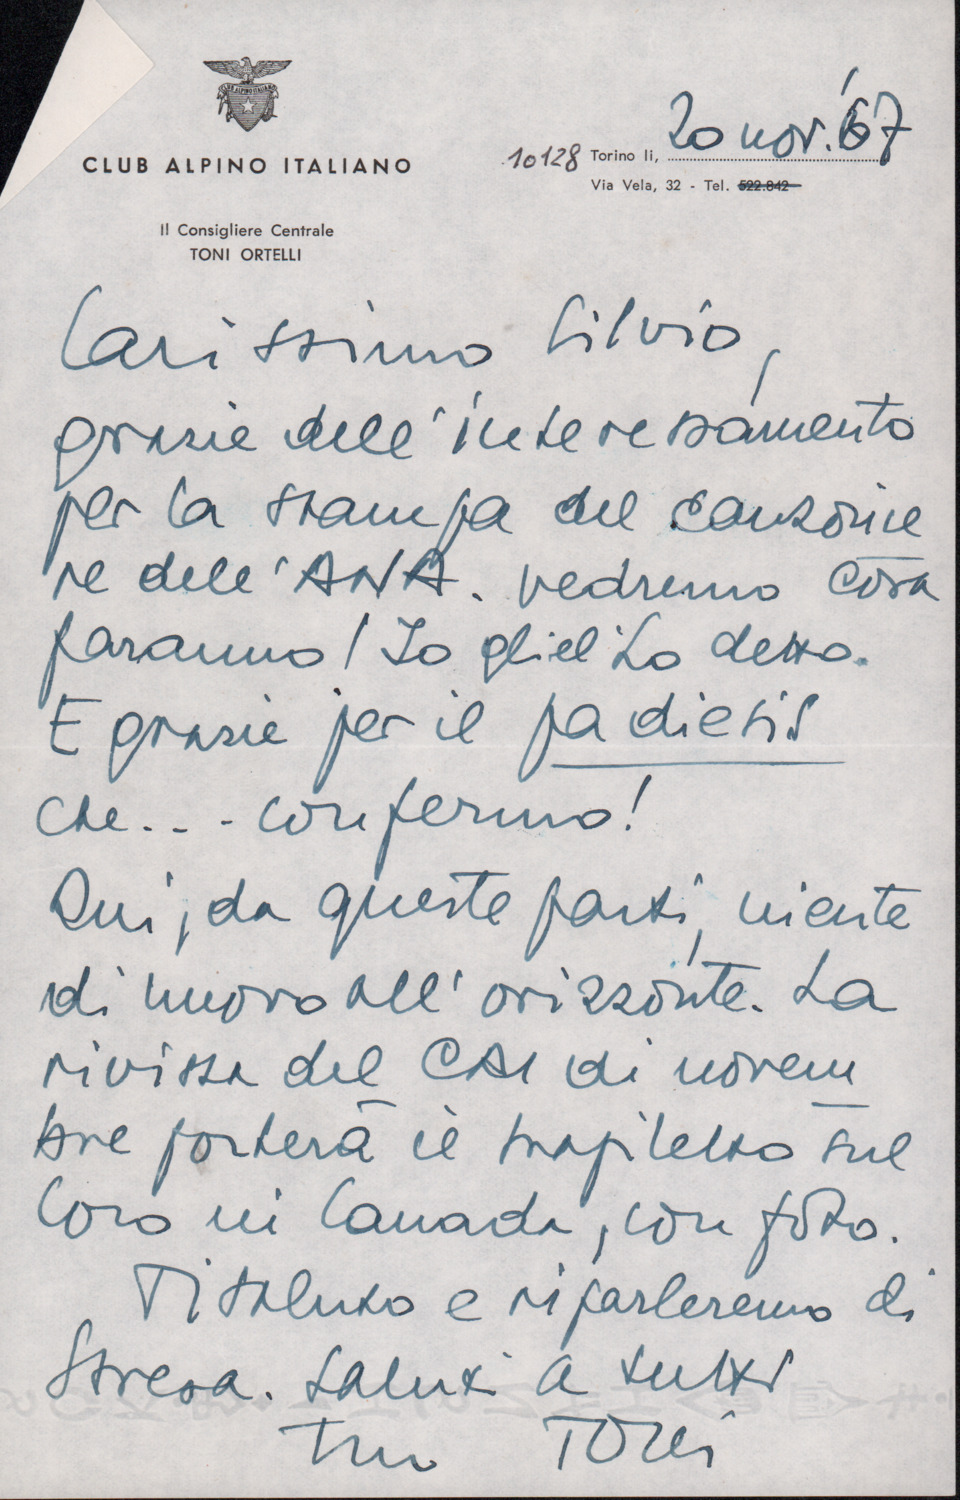 CLUB ALPINO ITALIANO
CLUB ALPINO ITALIANO
Il Consigliere Centrale
TONI ORTELLI
10128 Torino li, 20 nov. '67
Via Vela, 32 - Tel. 522.842
Carissimo Silvio,
grazie dell'interessamento
per la stampa del canzonie
re dell'ANA. vedremo cosa
faranno! Io gliel'ho detto.
E grazie per il fa diesis
che... confermo!
Qui, da queste parti, niente
di nuovo all'orizzonte. La
rivista del CAI di novem
bre porterà il trafiletto sul
Coro in Canada, con foto.
Ti saluto e riparleremo di
Stresa. Saluti a tutti
Tuo Toni